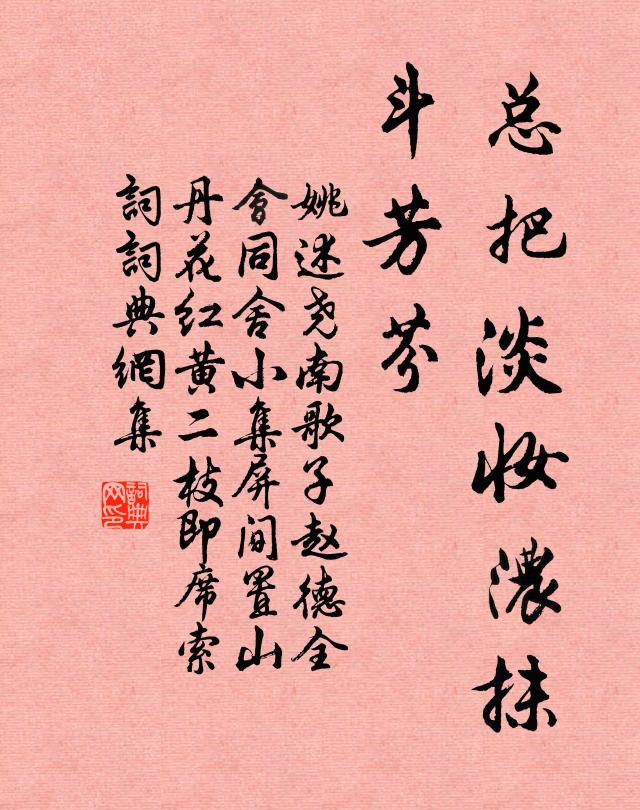 总把淡妆濃抹
斗芳芬
姚述尧南歌子赵德全
會同舍小集屏间置山
丹花红黄二枝即席索
詞詞典網集
詞典
网印